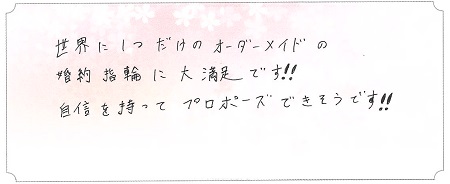 世界に1つだけのオーダーメイドの
婚約指輪に大満足です!!
自信を持ってプロポーズできそうです!!